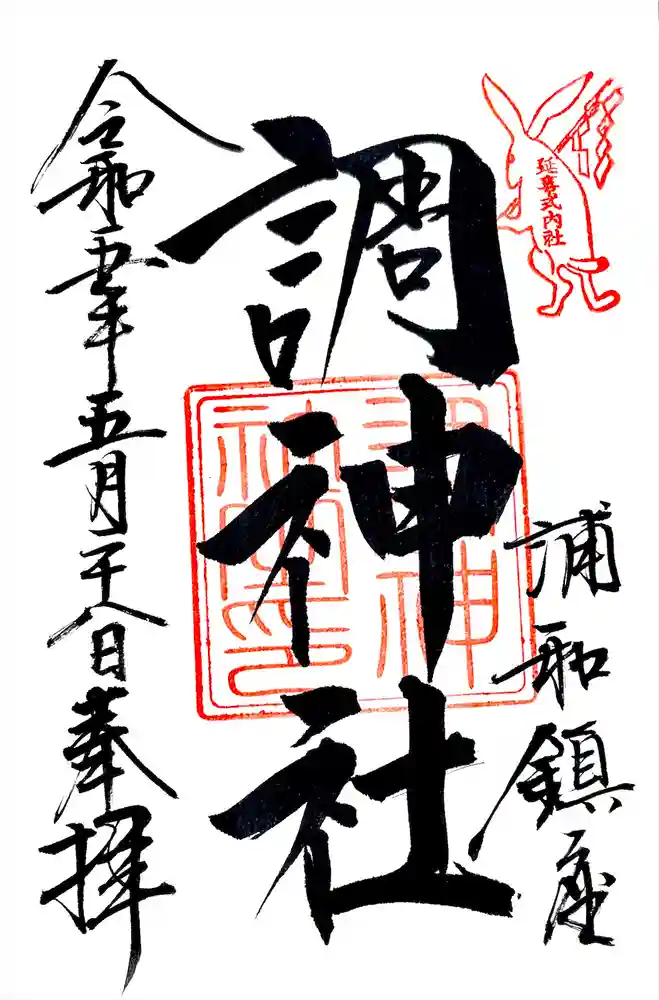 延喜式内社
浦和鎮座
調神社
調神
社宝印
令和五年五月二十八日奉拝